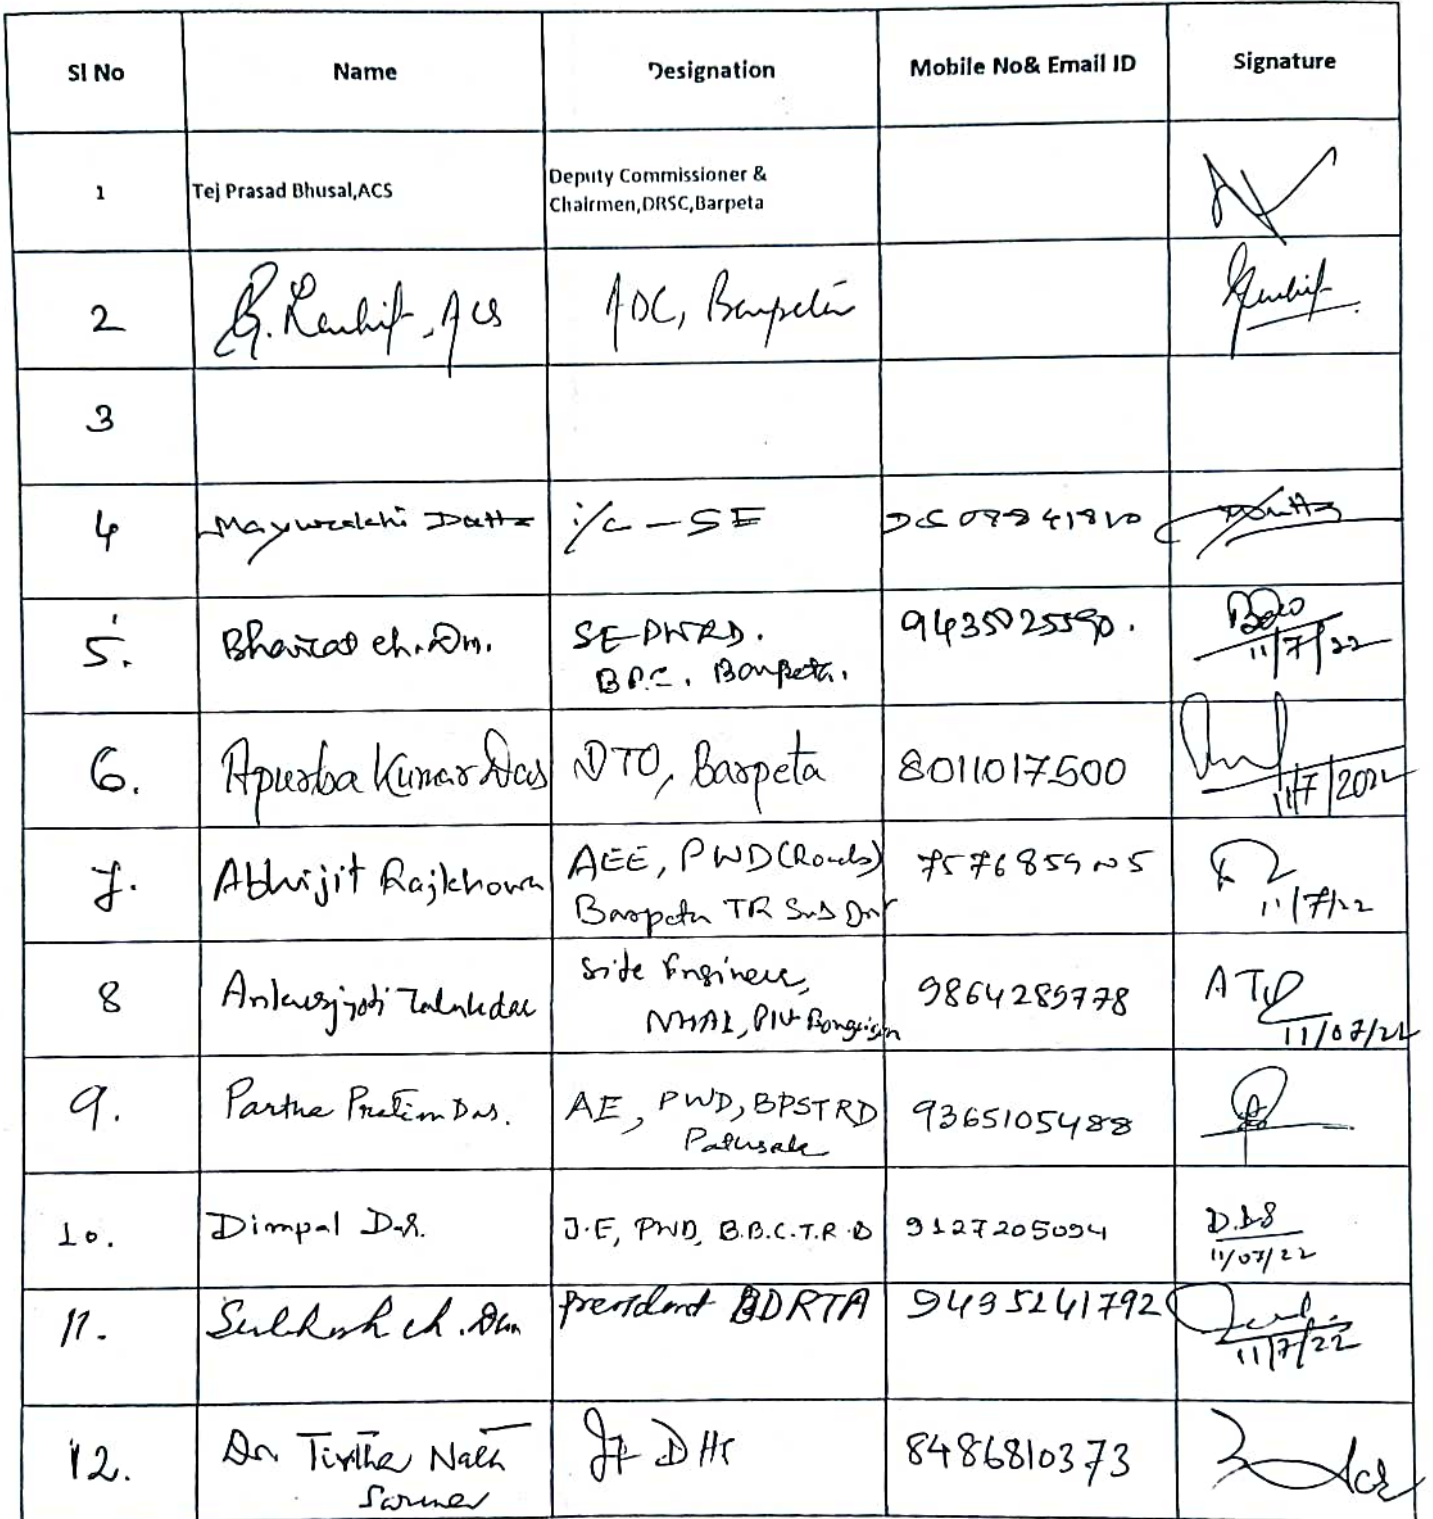 Sl No Name Designation Mobile No& Email ID Signature
1 Tej Prasad Bhusal,ACS Deputy Commissioner &
Chairmen,DRSC,Barpeta
2 ACS ADC, Barpeta
3
4 Mayurakhi Dutta i/c - SE
5. Bharat ch. Das. SE PWRD. 9435025590.
Barpeta. 11/7/22
6. Apurba Kumar Das DTO, Barpeta 8011017500
11/7/2022
7. Abhijit Rajkhowa AEE, PWD (Roads)
Barpeta TR Sub Div 11/7/22
8 Ankurjyoti Talukdar Site Engineer, 9864289778
NHAI, PIU Bongaigaon 11/07/22
9. Partha Pratim Das. AE, PWD, BPSTRD 9365105488
10. Dimpal Das. J.E, PWD, B.B.C.T.R.D 9127205094 D.DS
11/07/22
11. ch. Das president BDRTA 9435141792
11/7/22
12. Dr Tirtha Nath Jt DHS 8486810373
Sarma